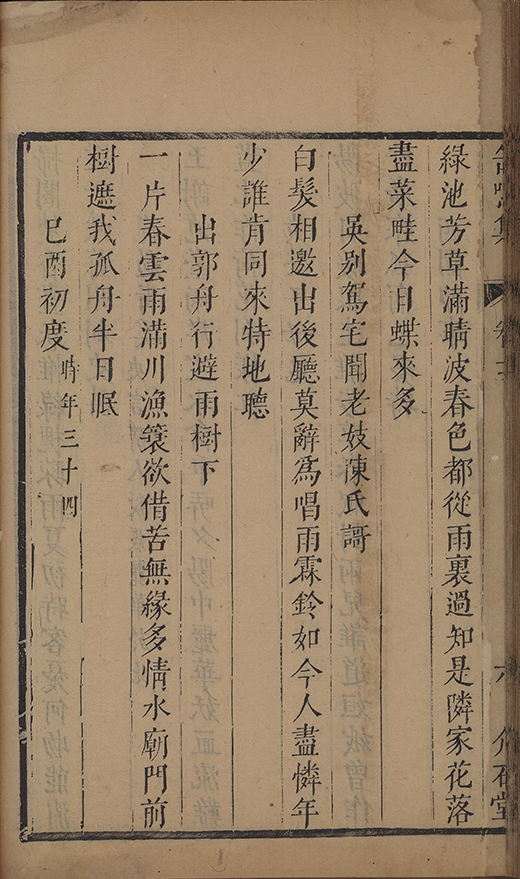 綠池芳草滿晴波春色都從雨裏過知是隣家花落
盡菜畦今日蝶來多
吳别駕宅聞老妓陳氏謌
白髮相邀出後廳莫辭爲唱雨霖鈴如今人盡憐年
少誰肯同來特地聽
出郭舟行避雨樹下
一片春雲雨滿川漁簑欲借苦無緣多情水廟門前
樹遮我孤舟半日眠
巳酉初度時年三十四